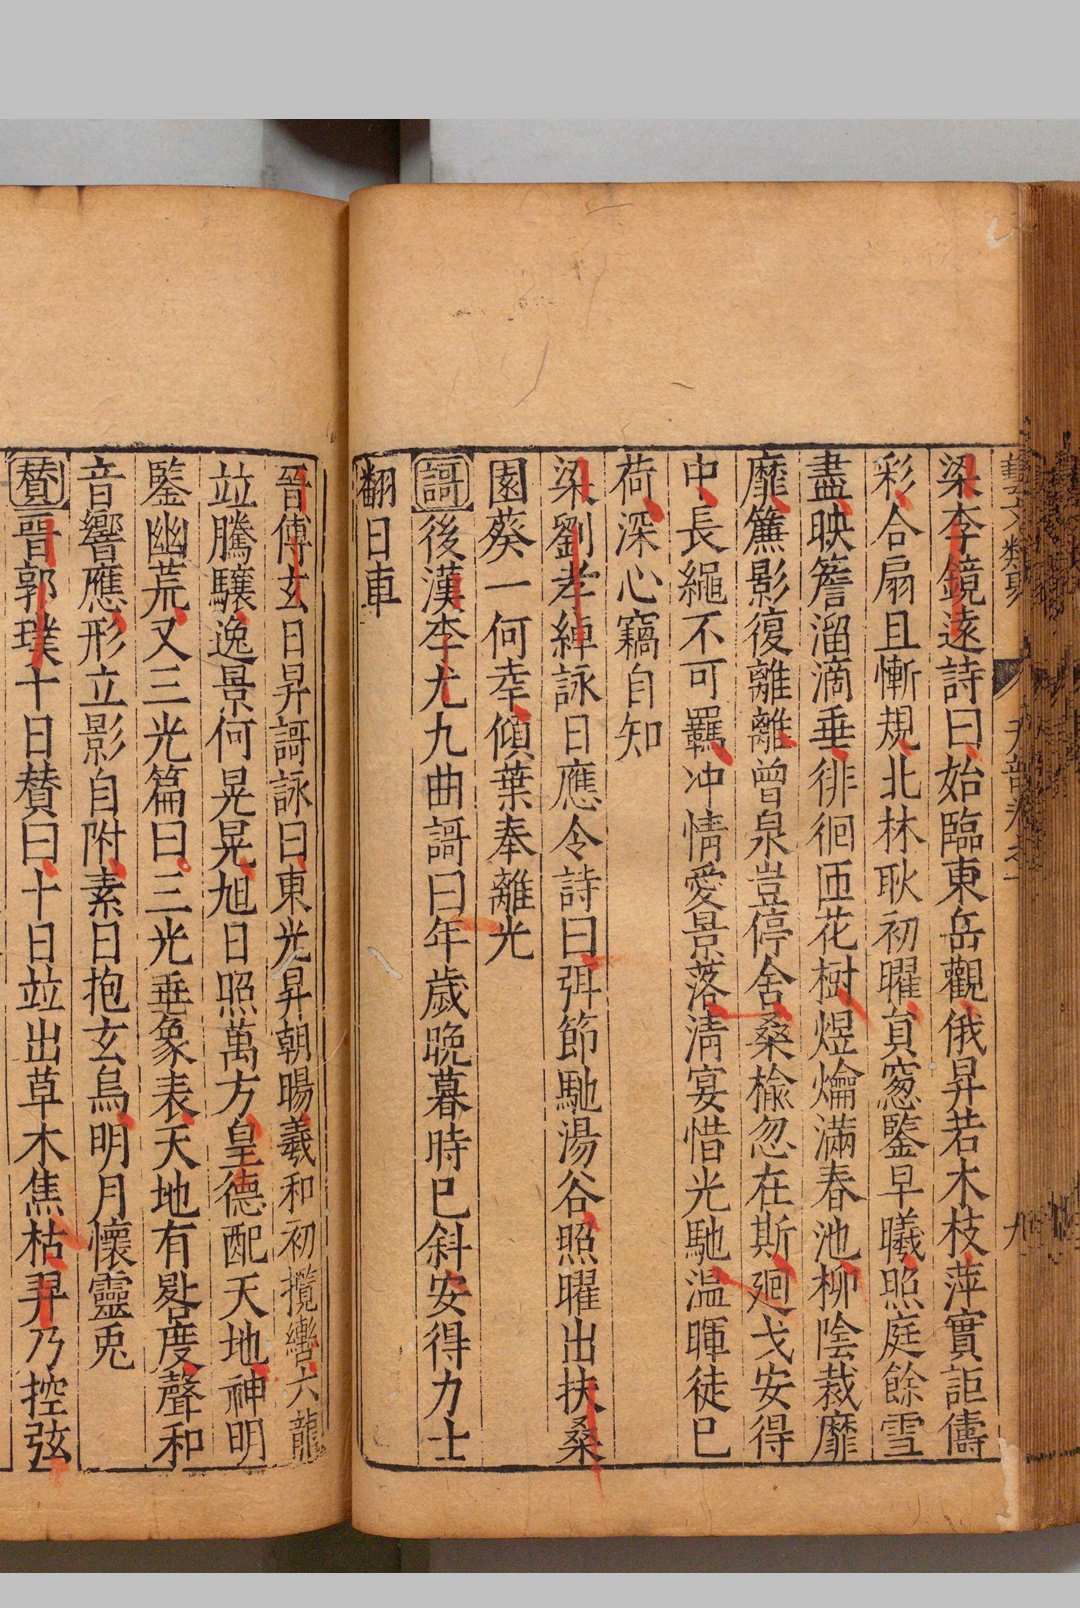 藝文類聚 天部卷之一 九
梁李鏡遠詩曰始臨東岳觀俄昇若木枝萍實詎儔
彩合扇且慚規北林耿初曜眞窓鑒早曦照庭餘雪
盡映簷溜滴垂徘徊匝花樹煜爚滿春池柳陰裁靡
靡簾影復離離曾泉豈停舍桑榆忽在斯廻戈安得
中長繩不可羈沖情愛景落淸宴惜光馳温暉徒已
荷深心竊自知
梁劉孝綽詠日應令詩曰弭節馳湯谷照曜出扶桑
園葵一何幸傾葉奉離光
謌後漢李尤九曲謌曰年歲晚暮時已斜安得力士
翻日車
晉傅玄日昇謌詠曰東光昇朝暘羲和初攬轡六龍
竝騰驤逸景何晃晃旭日照萬方皇德配天地神明
鑒幽荒又三光篇曰三光垂象表天地有晷度聲和
音響應形立影自附素日抱玄烏明月懷靈兎
贊晉郭璞十日贊曰十日竝出草木焦枯羿乃控弦